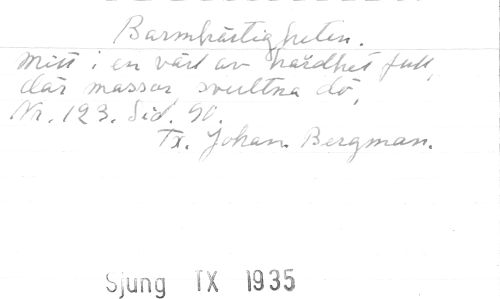 Barmhärtigheten.
Mitt i en värl av hårdhet full,
där massor svultna dö,
Nr. 123. Sid. 90.
Tx. Johan Bergman.
Sjung IX 1935